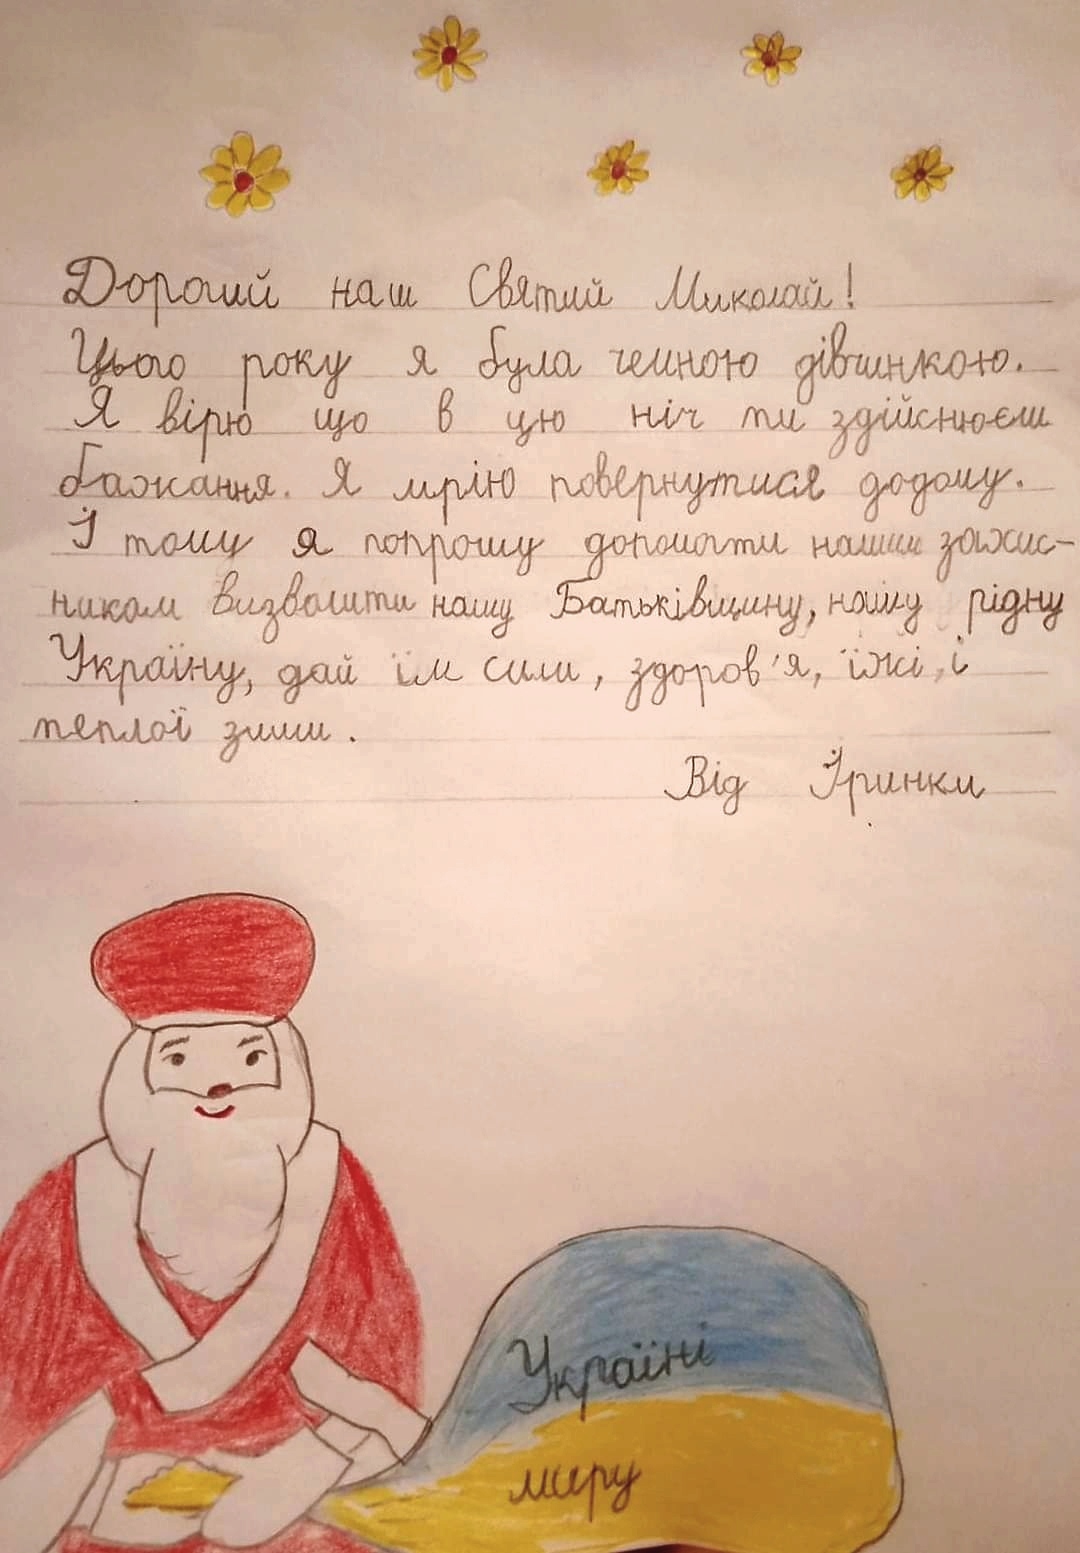 Дорогий наш Святий Миколай!
Цього року я була чемною дівчинкою.
Я вірю що в цю ніч ти здійснюєш
бажання. Я мрію повернутися додому.
І тому я попрошу допомогти нашим захис-
никам визволити нашу Батьківщину, нашу рідну
Україну, дай їм сили, здоров'я, їжі, і
теплої зими.
Від Іринки
Україні
миру